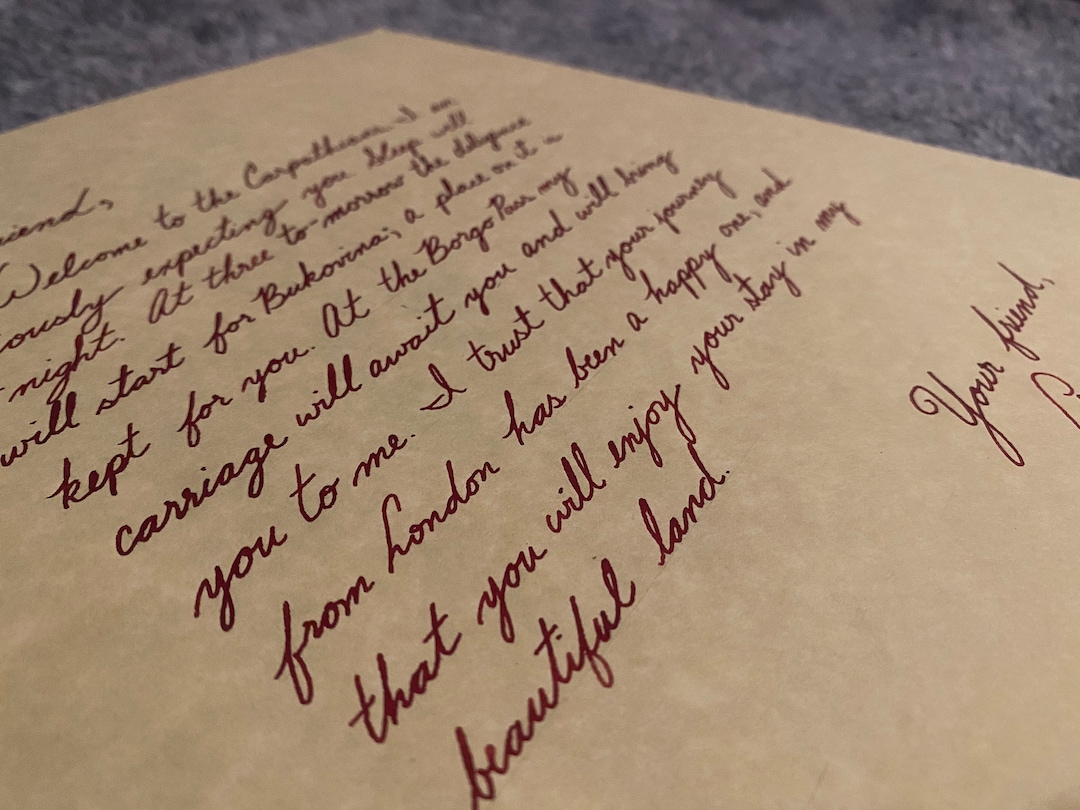 riend,
Welcome to the Carpathians. I am
iously expecting you. Sleep well
night. At three to-morrow the diligence
will start for Bukovina; a place on it is
kept for you. At the Borgo Pass my
carriage will await you and will bring
you to me. I trust that your journey
from London has been a happy one, and
that you will enjoy your stay in my
beautiful land.
Your friend,